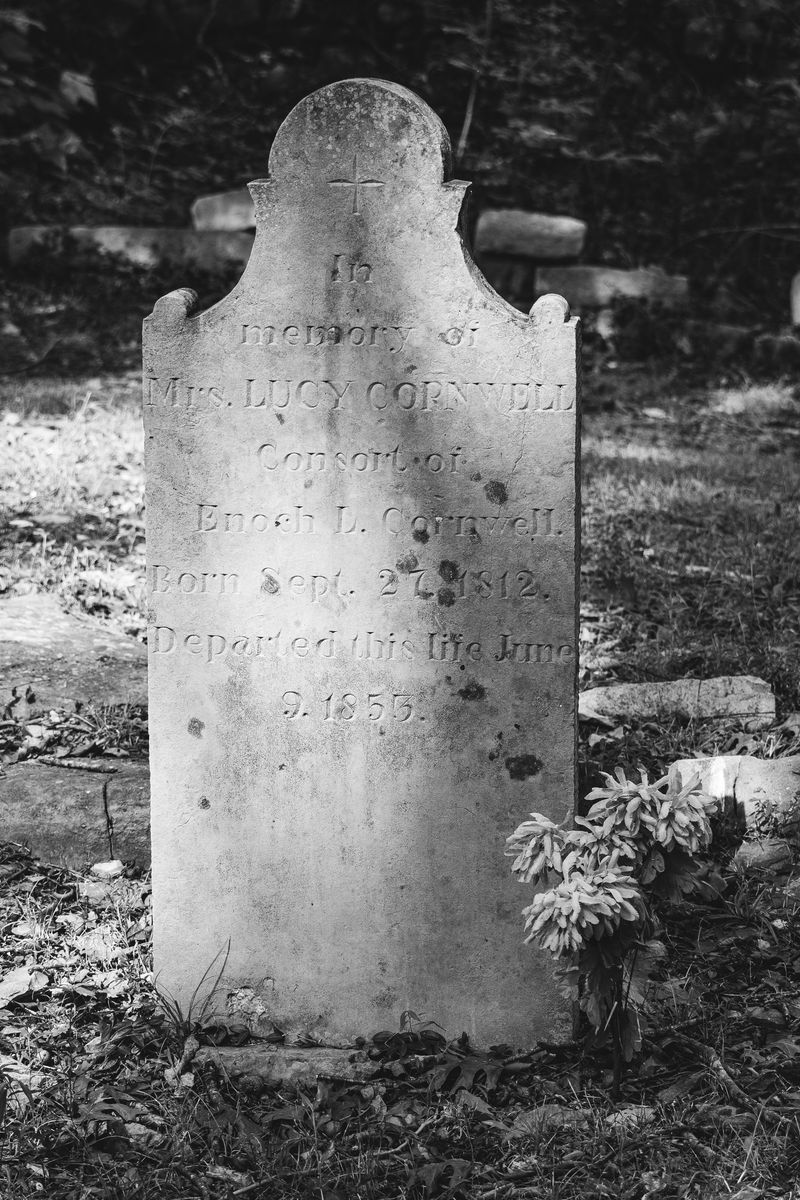 In
memory of
Mrs. LUCY CORNWELL
Consort of
Enoch L. Cornwell.
Born Sept. 27, 1812.
Departed this life June
9. 1853.